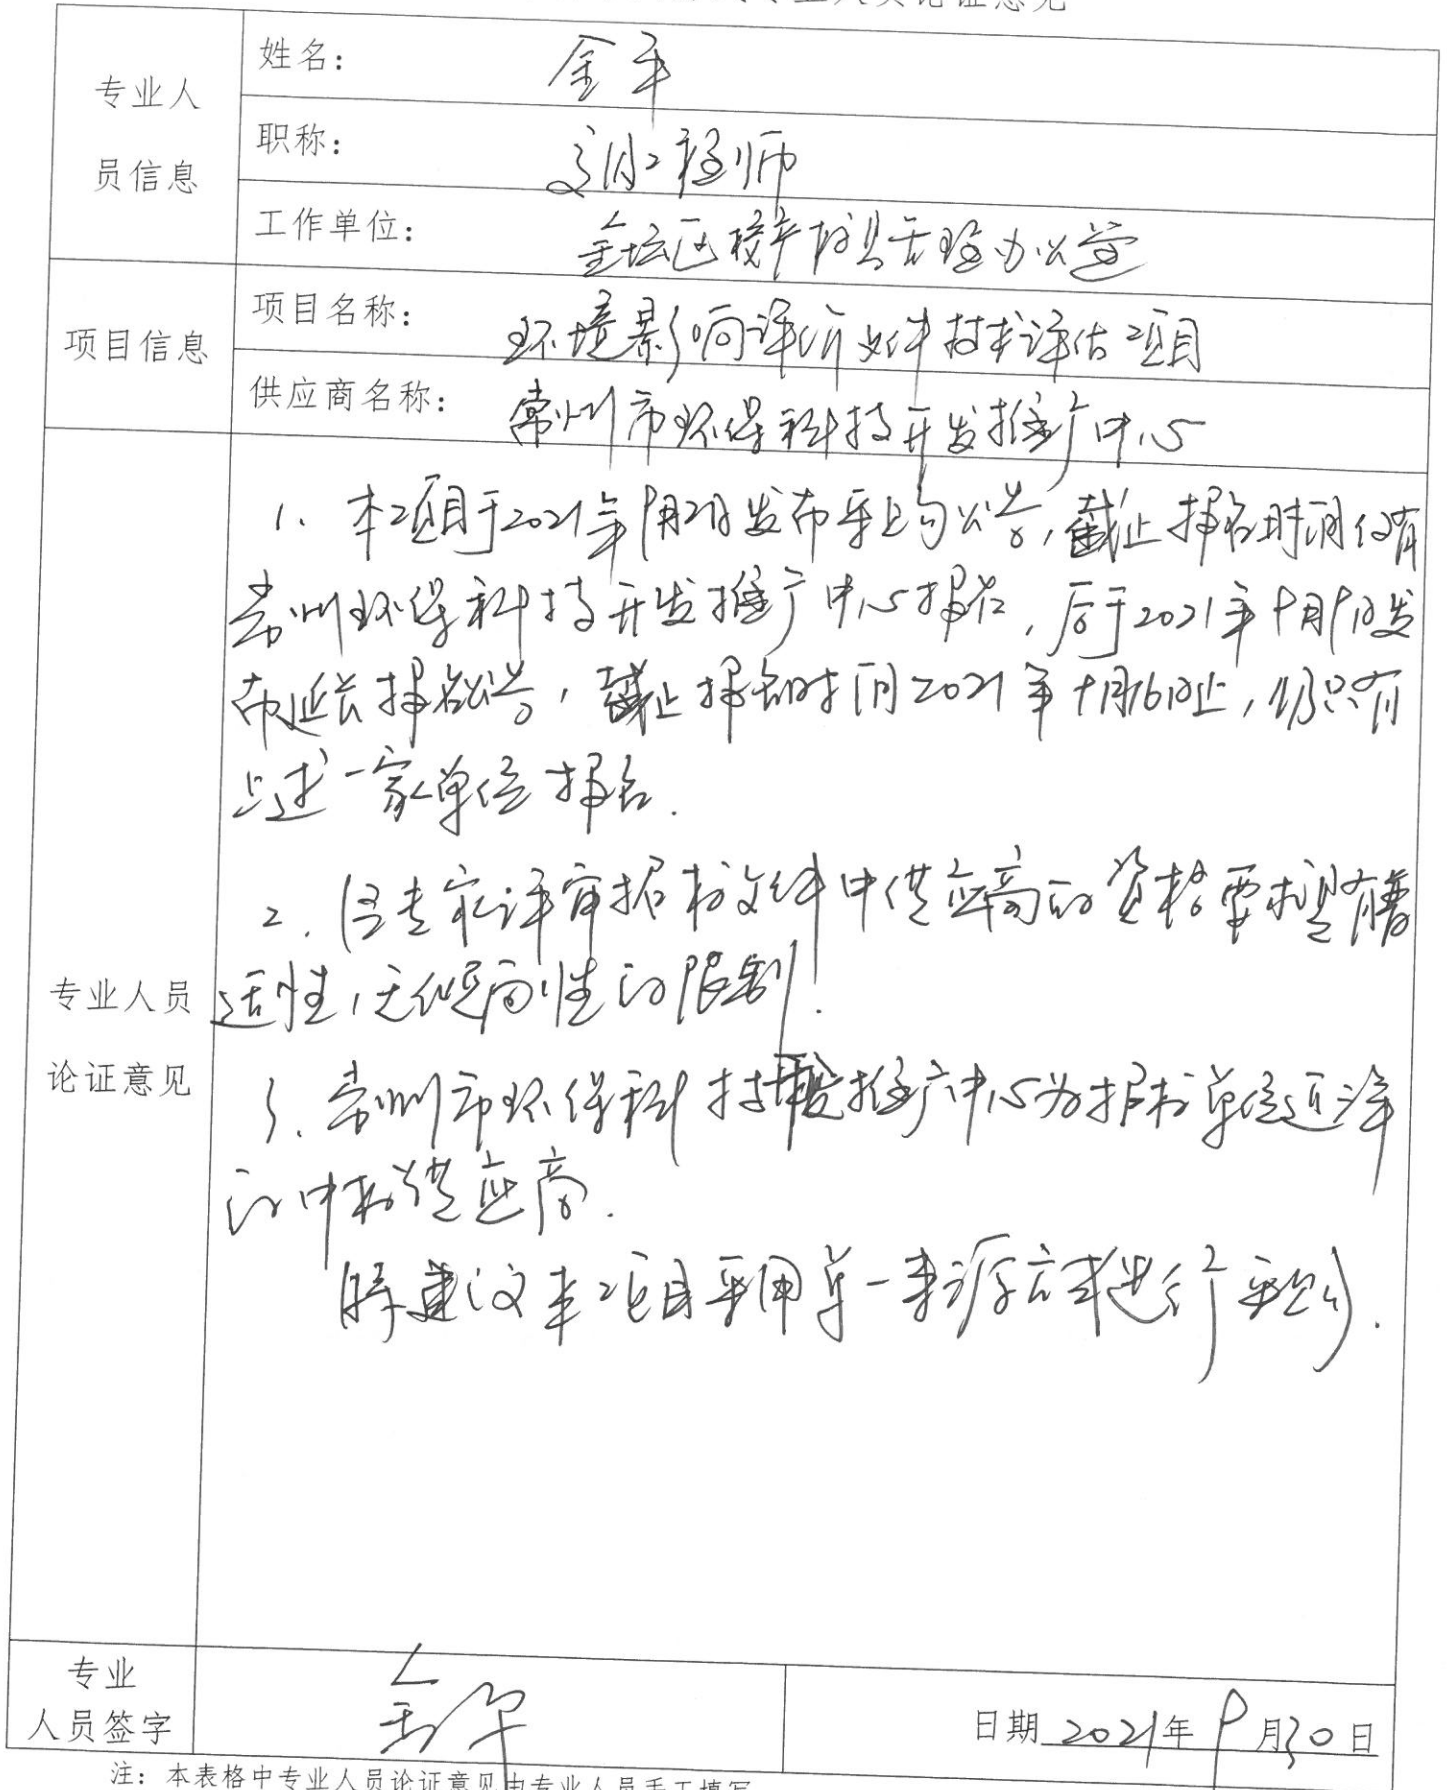 专业人员论证意见
专业人
员信息
姓名：
金平
职称：
高级工程师
工作单位：
金坛区 办公室
项目信息
项目名称：
环境影响评价文件技术评估项目
供应商名称：
常州市环保科技开发推广中心
专业人员
论证意见
1、本项目于2021年9月2日发布采购公告，截止报名时间仅有
常州环保科技开发推广中心报名，后于2021年9月9日发
布延长报名公告，截止报名时间2021年9月16日止，仍只有
上述一家单位报名.
2、经专家评审招标文件中供应商的资格要求具有普
适性，无倾向性的限制.
3、常州市环保科技开发推广中心为招标单位
的中标供应商.
建议本项目采用单一来源方式进行采购.
专业
人员签字
金平
日期 2021年9月30日
注：本表格中专业人员论证意见由专业人员手工填写